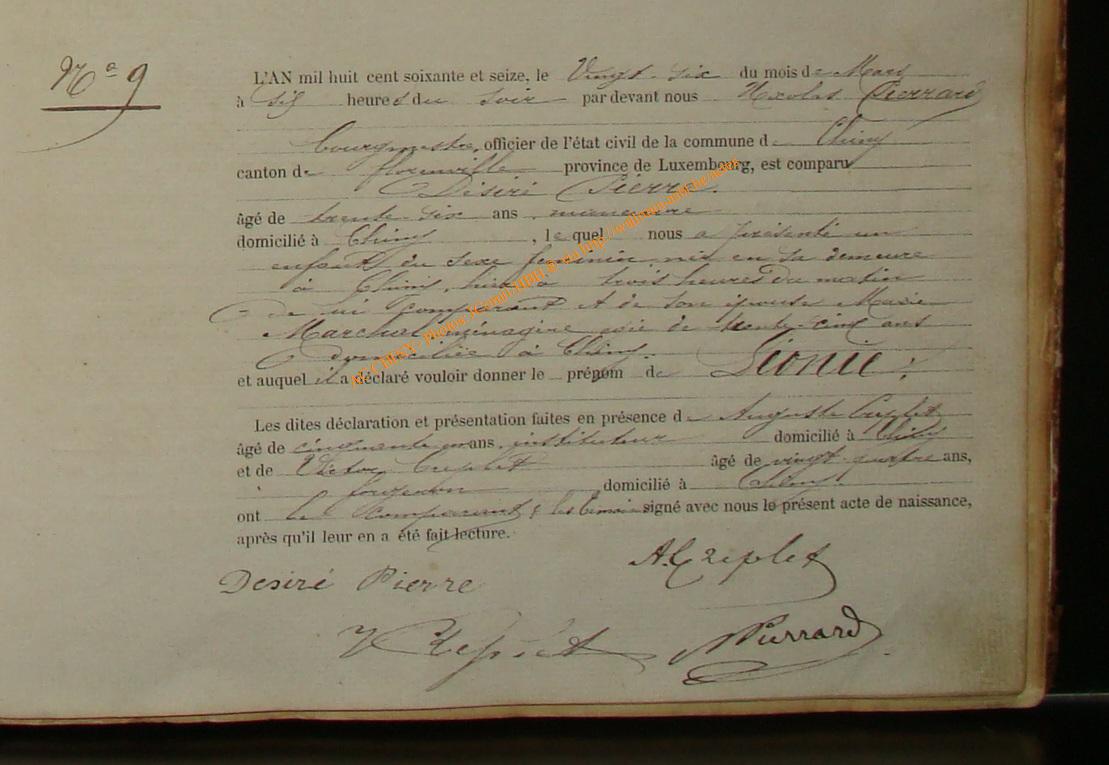 Nº 9
L'AN mil huit cent soixante et seize, le Vingt-six du mois de Mars
à six heures du soir par devant nous Nicolas Pierrard
bourgmestre, officier de l'état civil de la commune de Chiny
canton de florenville province de Luxembourg, est comparu
Désiré Pierre.
âgé de trente-six ans, manœuvre
domicilié à Chiny, lequel nous a présenté un
enfant du sexe féminin né en sa demeure
à Chiny, hier à trois heures du matin
de lui comparant et de son épouse Marie
Marchal ménagère agée de trente-cinq ans
domiciliée à Chiny.
et auquel il a déclaré vouloir donner le prénom de Léonie.
Les dites déclaration et présentation faites en présence de Auguste Creplet
âgé de cinquante ans, instituteur domicilié à Chiny
et de Victor Creplet âgé de vingt-quatre ans,
forgeron, domicilié à Chiny.
ont le comparant & les témoins signé avec nous le présent acte de naissance,
après qu'il leur en a été fait lecture.
A. Creplet
Desiré Pierre
V Creplet NPierrard